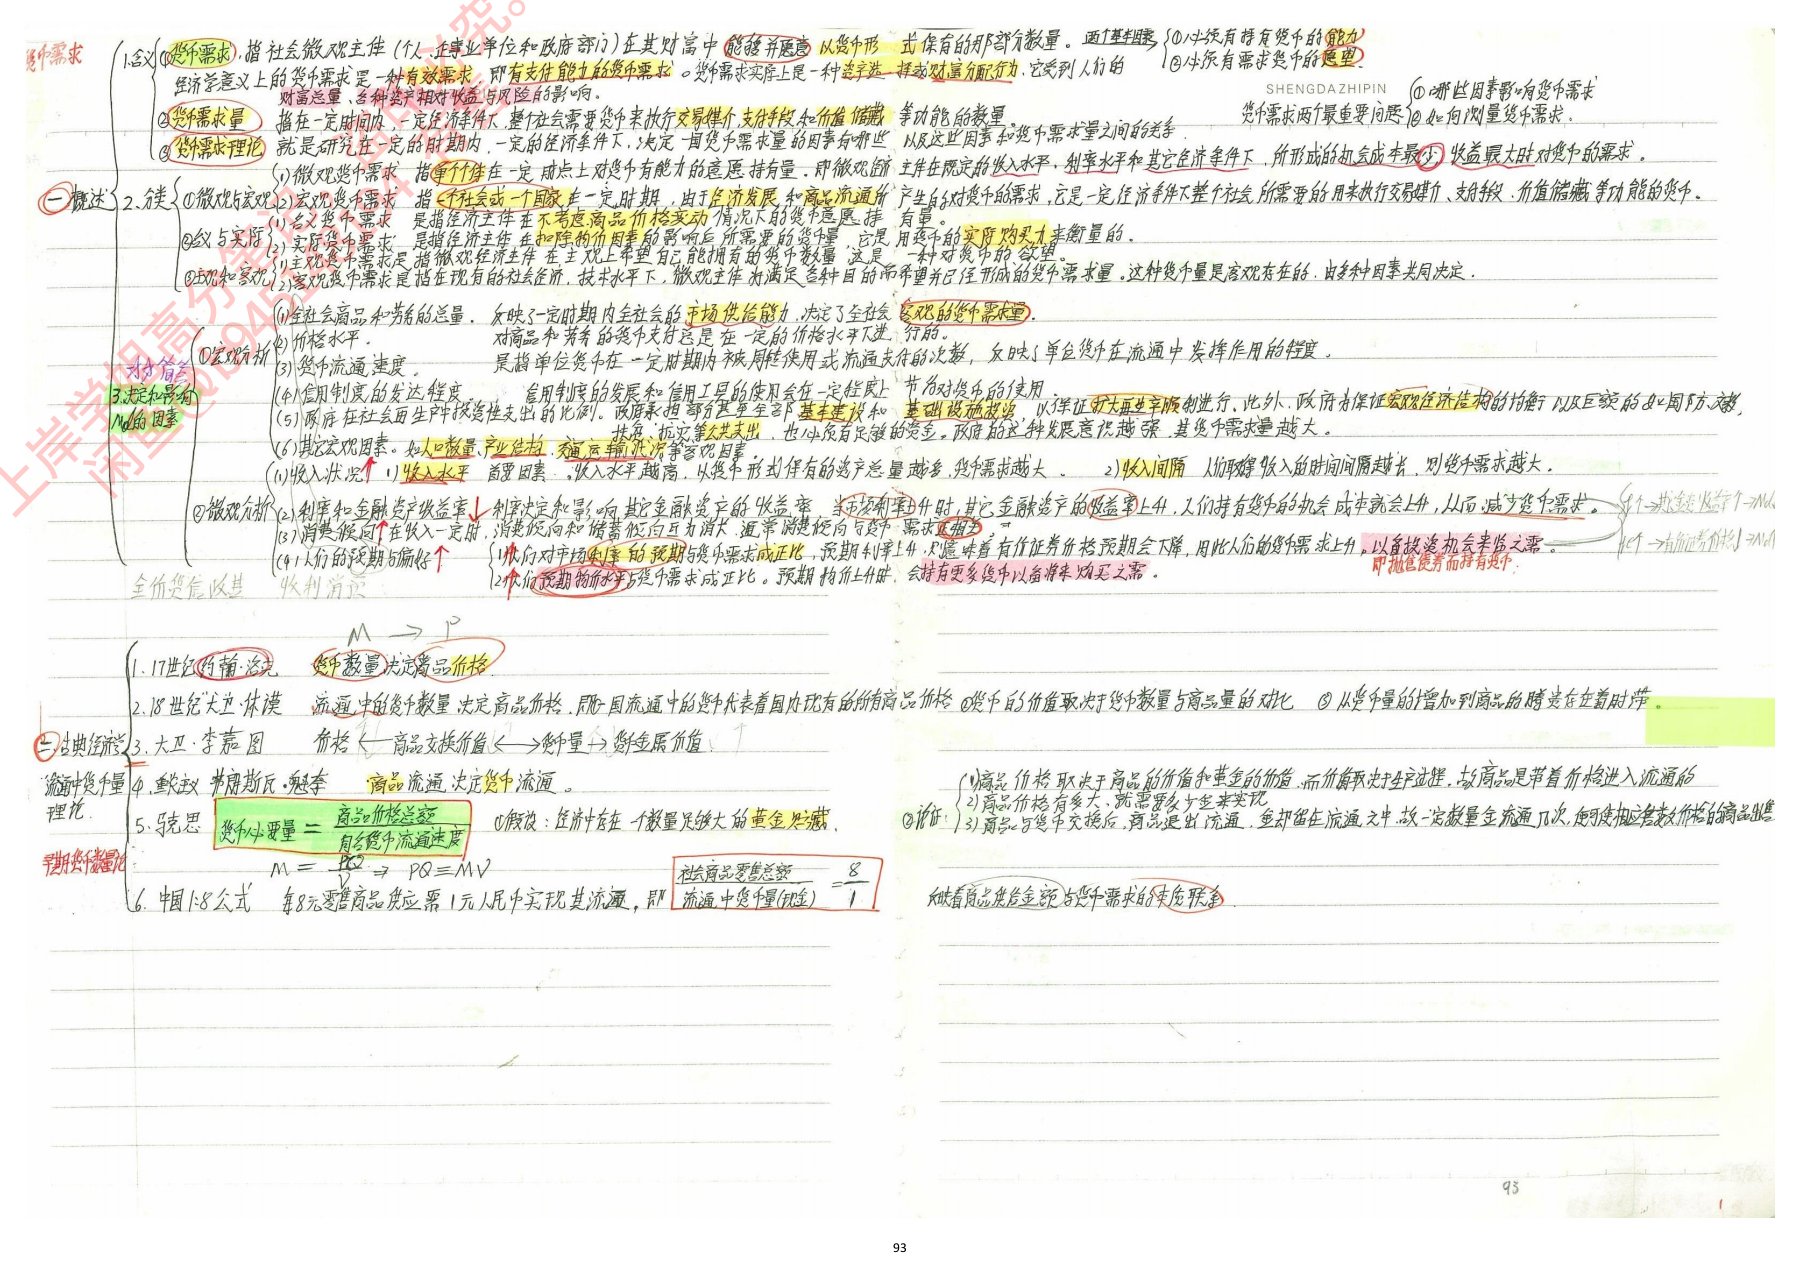 货币需求
一 概述
1.含义
①货币需求,指社会微观主体(个人、企事业单位和政府部门)在其财富中能够并愿意以货币形式保有的那部分数量。两个基本因素 ①必须有持有货币的能力
②必须有需求货币的愿望.
经济学意义上的货币需求是一种有效需求,即有支付能力的货币需求。货币需求实际上是一种资产选择或财富分配行为,它受到人们的
财富总量、各种资产相对收益与风险的影响。
SHENGDAZHIPIN
②货币需求量 指在一定时间内,一定经济条件下,整个社会需要货币来执行交易媒介、支付手段和价值储藏等功能的数量。
货币需求两个最重要问题 ①哪些因素影响货币需求
②如何测量货币需求.
③货币需求理论 就是研究在一定的时期内,一定的经济条件下,决定一国货币需求量的因素有哪些 以及这些因素和货币需求量之间的关系.
2.分类
①微观与宏观
(1)微观货币需求 指单个个体在一定时点上对货币有能力的意愿持有量.即微观经济主体在既定的收入水平、利率水平和其它经济条件下,所形成的机会成本最少,收益最大时对货币的需求。
(2)宏观货币需求 指一个社会或一个国家在一定时期,由于经济发展和商品流通所产生的对货币的需求,它是一定经济条件下整个社会所需要的用来执行交易媒介、支付手段、价值储藏等功能的货币。
②名义与实际
(1)名义货币需求 是指经济主体在不考虑商品价格变动情况下的货币意愿持有量。
(2)实际货币需求 是指经济主体在扣除物价因素的影响后所需要的货币量,它是用货币的实际购买力来衡量的。
③主观和客观
(1)主观货币需求是指微观经济主体在主观上希望自己能拥有的货币数量,这是一种对货币的欲望。
(2)客观货币需求是指在现有的社会经济、技术水平下,微观主体为满足各种目的而希望并已经形成的货币需求量。这种货币量是客观存在的.由多种因素共同决定.
3.决定和影响Md的因素
①宏观分析
(1)全社会商品和劳务的总量. 反映了一定时期内全社会的市场供给能力,决定了全社会客观的货币需求量.
(2)价格水平. 对商品和劳务的货币支付总是在一定的价格水平下进行的。
(3)货币流通速度. 是指单位货币在一定时期内被周转使用或流通支付的次数,反映了单位货币在流通中发挥作用的程度.
(4)信用制度的发达程度. 信用制度的发展和信用工具的使用会在一定程度上节约对货币的使用.
(5)政府在社会再生产中投资性支出的比例.政府承担部分甚至全部基本建设和基础设施投资,以保证扩大再生产顺利进行,此外、政府为保证宏观经济结构的均衡
扶贫、抗灾等公共支出,也必须有足够的资金。政府的这种发展意识越强,其货币需求量越大。
(6)其它宏观因素.如人口数量、产业结构、交通运输状况等客观因素.
②微观分析
(1)收入状况↑ 1)收入水平 首要因素.收入水平越高,以货币形式保有的资产总量越多,货币需求越大. 2)收入间隔 人们取得收入的时间间隔越长,则货币需求越大.
(2)利率和金融资产收益率↓ 利率决定和影响其它金融资产的收益率,当市场利率上升时,其它金融资产的收益率上升,人们持有货币的机会成本就会上升,从而减少货币需求。
(3)消费倾向↑在收入一定时,消费倾向和储蓄倾向互为消长.通常消费倾向与货币需求正相关。
(4)人们的预期与偏好↑
1)人们对市场利率的预期与货币需求成正比,预期利率上升,则意味着有价证券价格预期会下降,因此人们的货币需求上升,以备投资机会来临之需。
即抛售债券而持有货币.
2)人们预期物价水平与货币需求成正比。预期物价上升时,会持有更多货币以备将来购买之需.
全价货信收其 收利消预
M → P
二 古典经济学流通中货币量理论.
早期货币数量论
1.17世纪约翰·洛克 货币数量决定商品价格.
2.18世纪大卫·休谟 流通中的货币数量决定商品价格,即一国流通中的货币代表着国内现有的所有商品价格 ②货币的价值取决于货币数量与商品量的对比 ③从货币量的增加到商品的腾贵存在着时滞。
3.大卫·李嘉图 价格←商品交换价值←→货币量→货币金属价值
4.重农主义 弗朗斯瓦·魁奈 商品流通决定货币流通。
5.马克思 货币必要量=商品价格总额/同名货币流通速度
①假设:经济中存在一个数量足够大的黄金贮藏.
②论证: 1)商品价格取决于商品的价值和黄金的价值,而价值取决于生产过程,故商品是带着价格进入流通的
2)商品价格有多大、就需要多少金来实现
3)商品与货币交换后,商品退出流通,金却留在流通之中,故一定数量金流通几次,便可使相应倍数价格的商品出售
M=PQ/V ⇒ PQ=MV
6.中国1:8公式 每8元零售商品供应需1元人民币实现其流通,即 社会商品零售总额/流通中货币量(现金)=8/1
反映着商品供给金额与货币需求的本质联系.
93
1
93